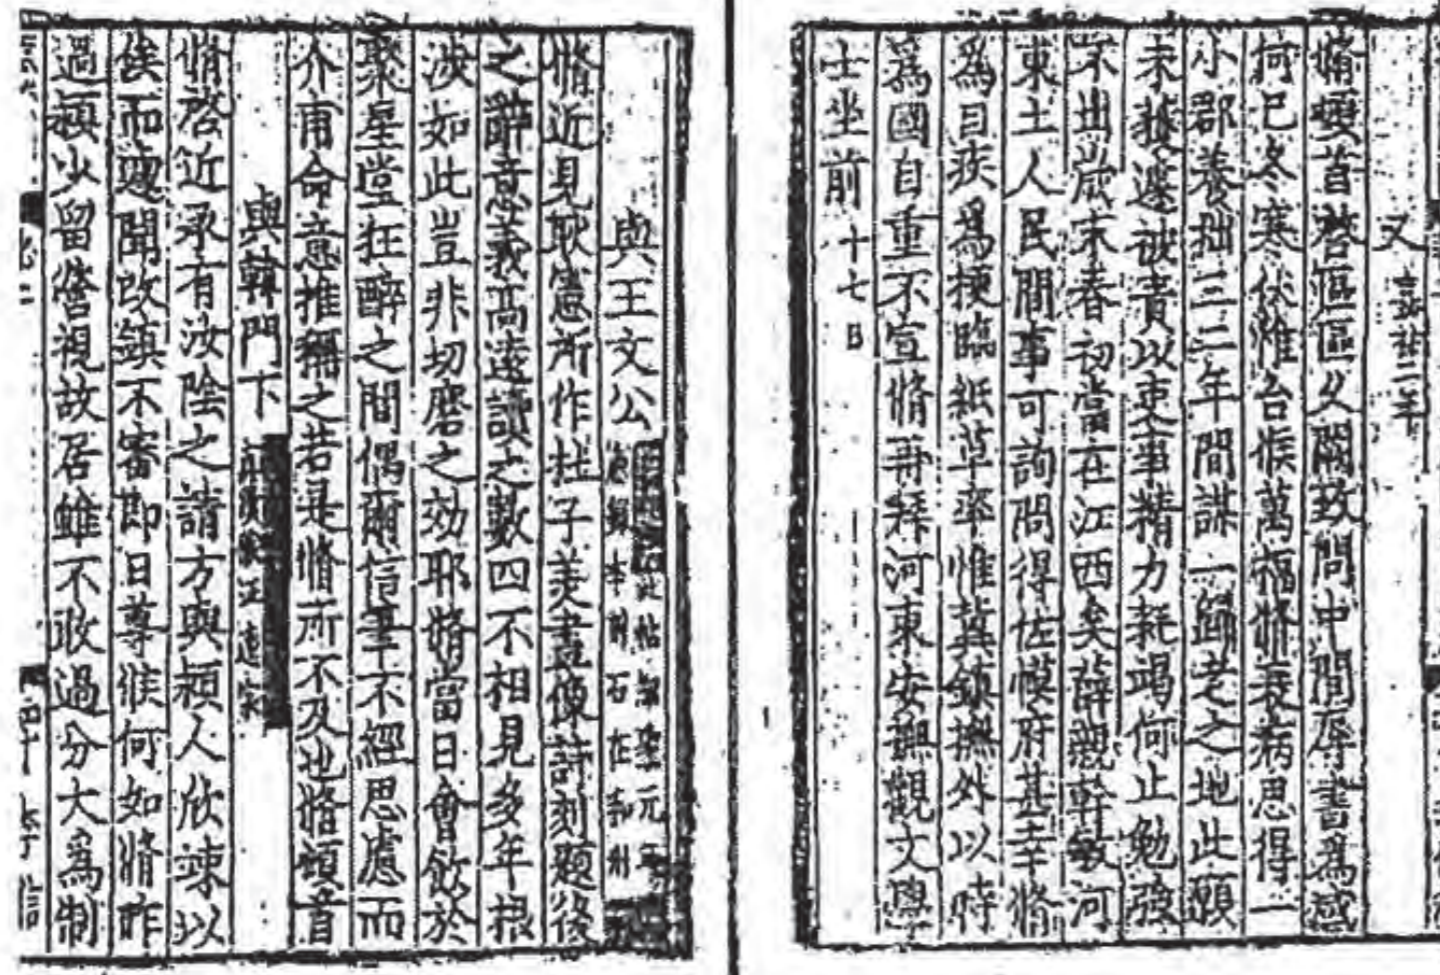 又 嘉祐二年
脩頓首啓區區久闕致問中間辱書為感
何已冬寒伏惟台候萬福脩衰病思得一
小郡養拙三二年間謀一歸老之地此願
未獲遽被責以吏事精力耗竭何止勉強
不出歲末春初當在江西矣薛親幹敏河
東土人民間事可詢問得佐幙府甚幸脩
為目疾為梗臨紙草率惟冀鎮撫外以時
為國自重不宣脩再拜河東安撫觀文學
士坐前 十七日
與王文公 此帖 聖元年 刻石在
脩近見耿憲所作杜子美畫像詩刻題後
之辭意義高遠讀之數四不相見多年根
波如此豈非切磨之効耶脩當日會飲於
聚星堂狂醉之間偶爾信筆不經思慮而
介甫命意推稱之若是脩所不及也脩頓首
與韓門下
脩啓近承有汝陰之請方與潁人欣竦以
俟而遽聞改鎮不審即日尊候何如脩昨
過潁少留營視故居雖不敢過分大為制